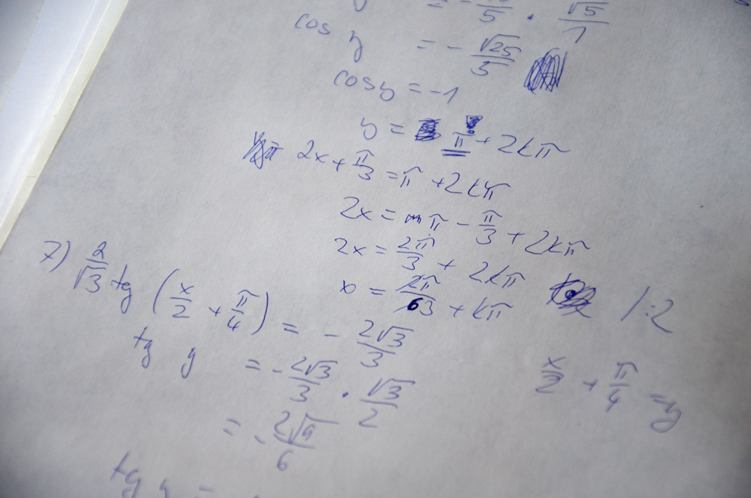 = - /5 · √5/1
cos y = - √25/5
cos y = -1
y = π + 2kπ
2x + π/3 = π + 2kπ
2x = π - π/3 + 2kπ
2x = 2π/3 + 2kπ /:2
x = 2π/63 + kπ
7) 2/√3 tg (x/2 + π/4) = - 2√3/3
x/2 + π/4 = y
tg y = - 2√3/3 · √3/2
= - 2√9/6
tg y =